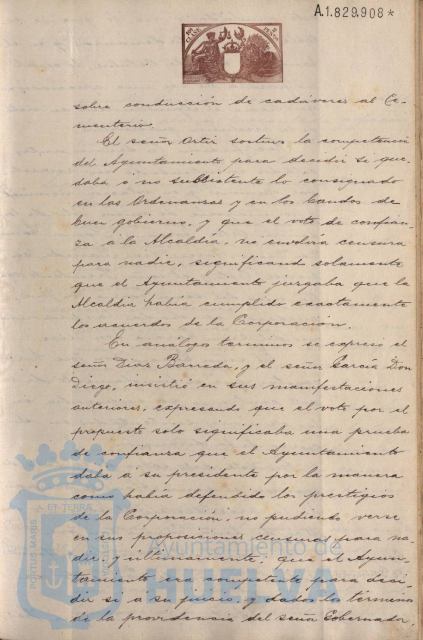 A.1.829.908*
sobre conducción de cadáveres al Ce-
menterio.
El señor Ortiz sostuvo la competencia
del Ayuntamiento para decidir si que-
daba ó no subsistente lo consignado
en las Ordenanzas y en los Bandos de
buen gobierno, y que el voto de confian-
za á la Alcaldia, no envolvia censura
para nadie, significand solamente
que el Ayuntamiento juzgaba que la
Alcaldia habia cumplido exactamente
los acuerdos de la Corporación.
En análogos terminos se expresó el
señor Diaz Barreda, y el señor García Don
Diego, insistió en sus manifestaciones
anteriores, expresando que el voto por el
propuesto solo significaba una prueba
de confianza que el Ayuntamiento
daba á su presidente por la manera
como habia defendido los prestigios
de la Corporación, no pudiendo verse
en sus proposiciones censuras para na-
die; y ultimamente, que el Ayun-
tamiento era competente para deci-
dir si a su juicio, y dados los terminos
de la providencia del señor Gobernador,
PORTUS MARIS ET TERRA
Ayuntamiento de
HUELVA